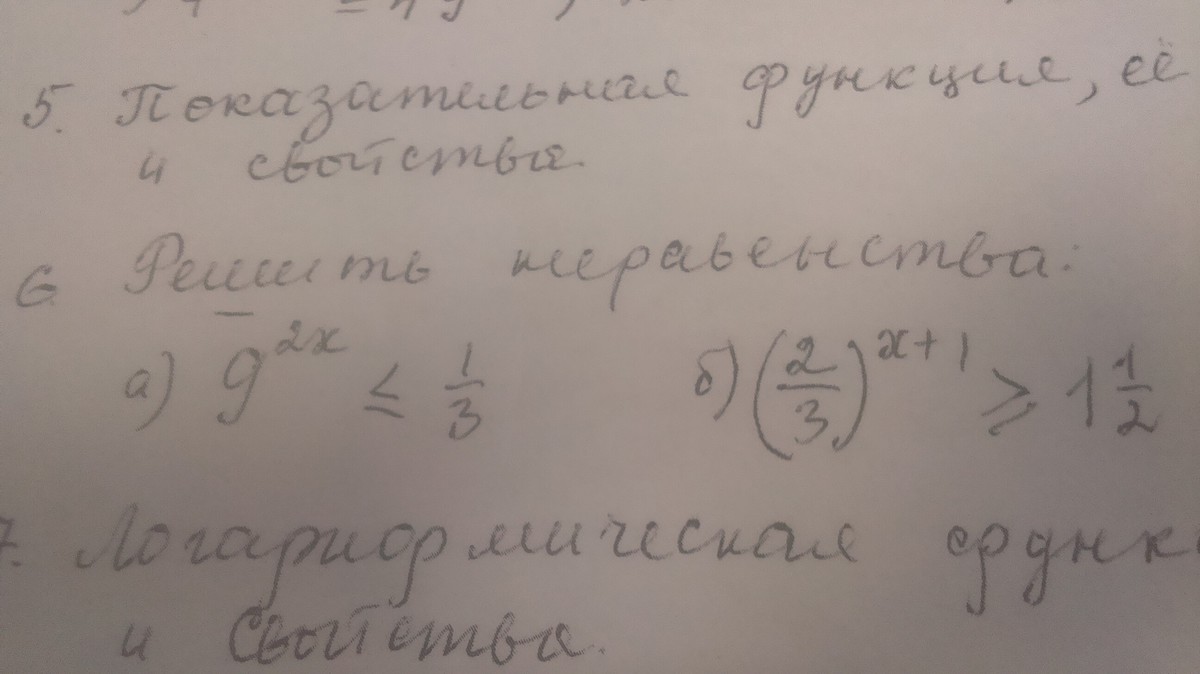 5. Показательная функция, её
и свойства.
6 Решить неравенства:
а) 9^{2x} ≤ 1/3 б) (2/3)^{x+1} ≥ 1 1/2
7. Логарифмическая функ
и Свойства.